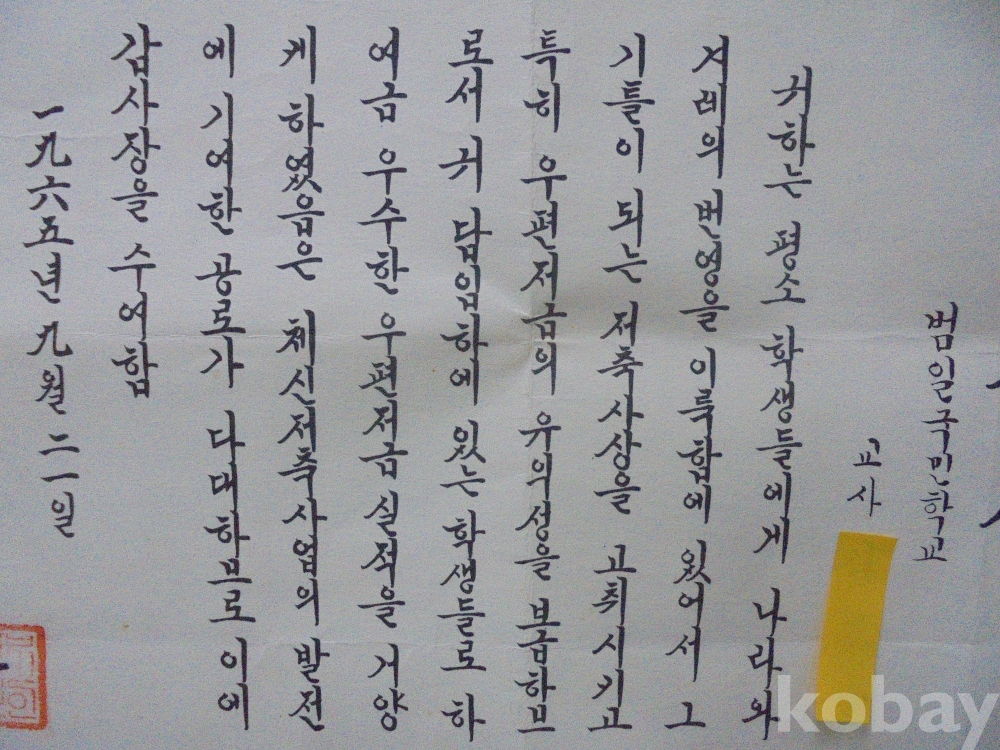 범일국민학교
교사
귀하는 평소 학생들에게 나라와
겨레의 번영을 이룩함에 있어서 그
기틀이 되는 저축사상을 고취시키고
특히 우편저금의 유의성을 보급하므
로서 귀 담임하에 있는 학생들로 하
여금 우수한 우편저금 실적을 거양
케 하였음은 체신저축사업의 발전
에 기여한 공로가 다대하므로 이에
감사장을 수여함
一九六五년 九월 二一일
kobay